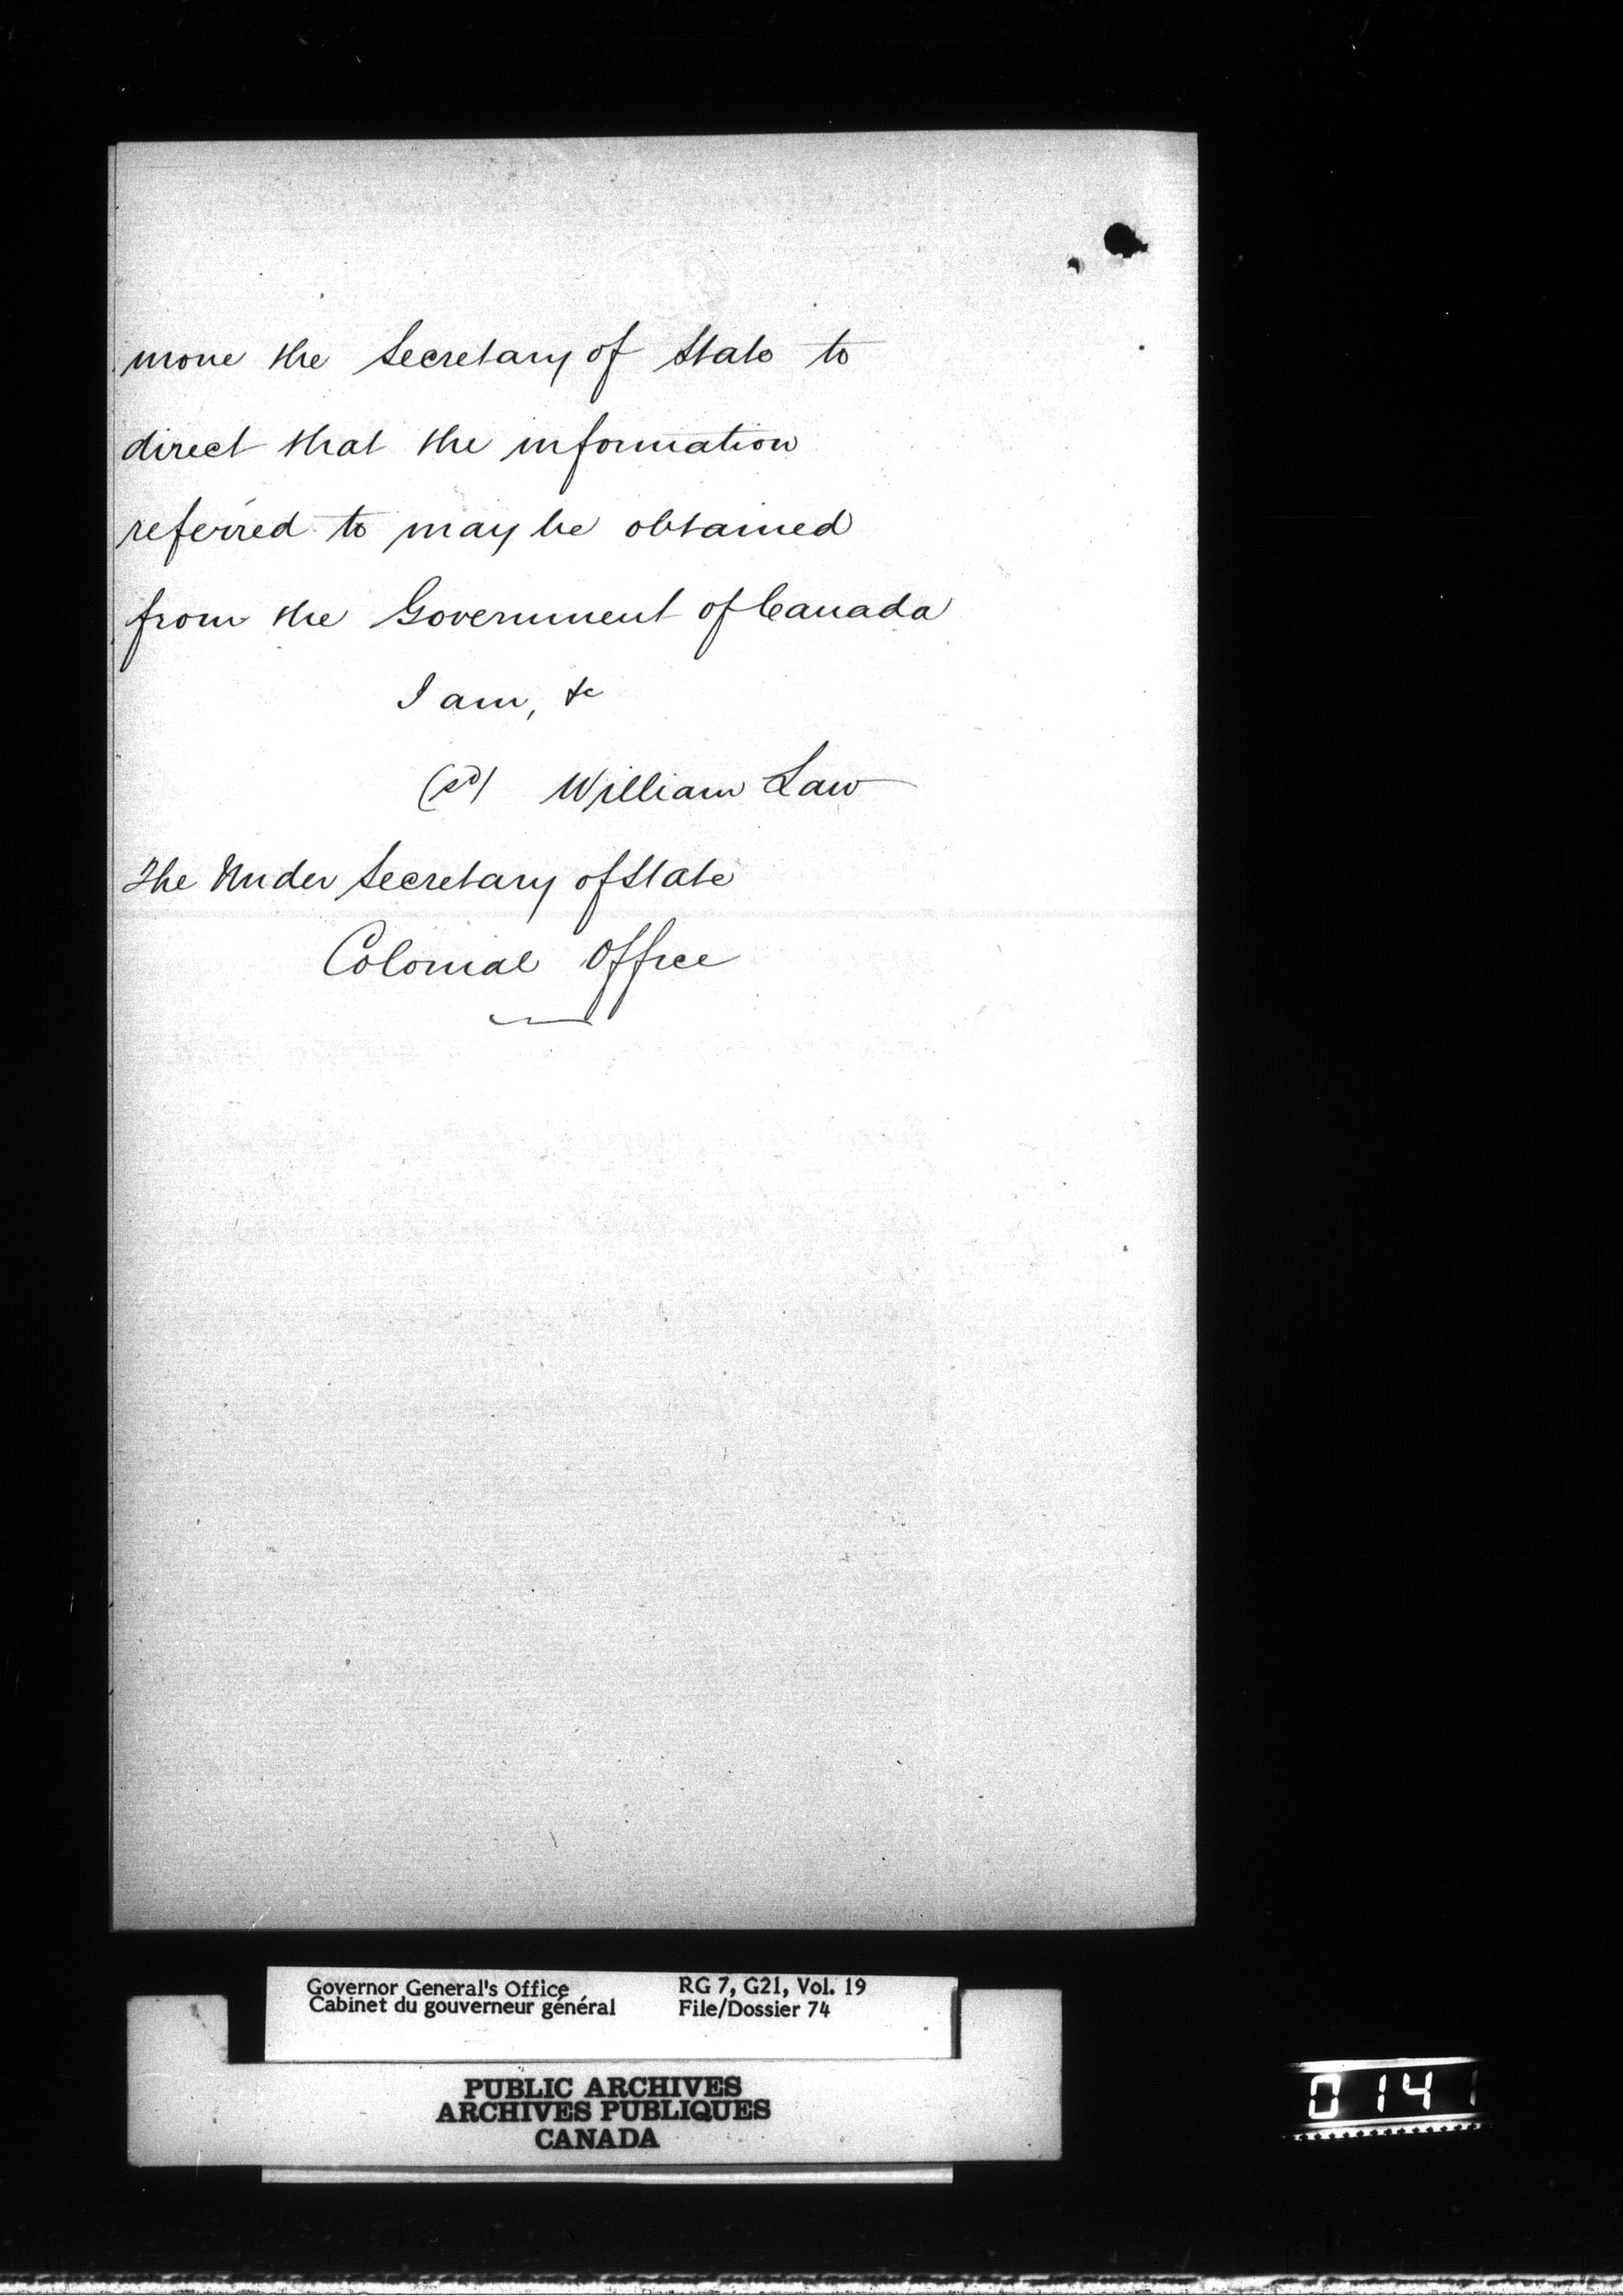 move the Secretary of State to
direct that the information
referred to may be obtained
from the Government of Canada
I am, &c
(sd) William Law
The Under Secretary of State
Colonial Office
Governor General's Office
Cabinet du gouverneur général
RG 7, G21, Vol. 19
File/Dossier 74
PUBLIC ARCHIVES
ARCHIVES PUBLIQUES
CANADA
0141